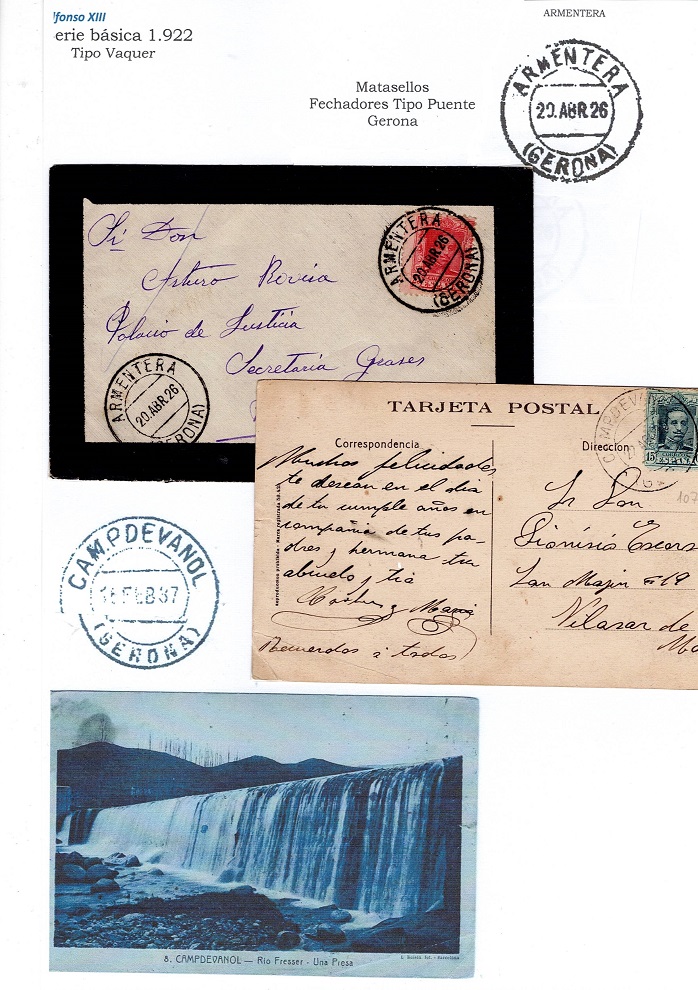 lfonso XIII
erie básica 1.922
Tipo Vaquer
Matasellos
Fechadores Tipo Puente
Gerona
ARMENTERA
ARMENTERA
20.ABR.26
(GERONA)
Sr Don
Arturo Rovira
Palacio de Justicia
Secretaria Grases
ARMENTERA
20.ABR.26
(GERONA)
ARMENTERA
20.ABR.26
(GERONA)
TARJETA POSTAL
Correspondencia
Direccion
CAMPDEV
15
107
Muchas felicidades
te desean en el dia
de tu cumple años en
compañia de tus pa-
dres y hermana tu
abuelo y tia
y Maria
Recuerdos á todos
Sr Don
Dionisio
San Magin
Vilasar de
CAMPDEVANOL
FEB 37
(GERONA)
8. CAMPDEVANOL — Rio Fresser - Una Presa